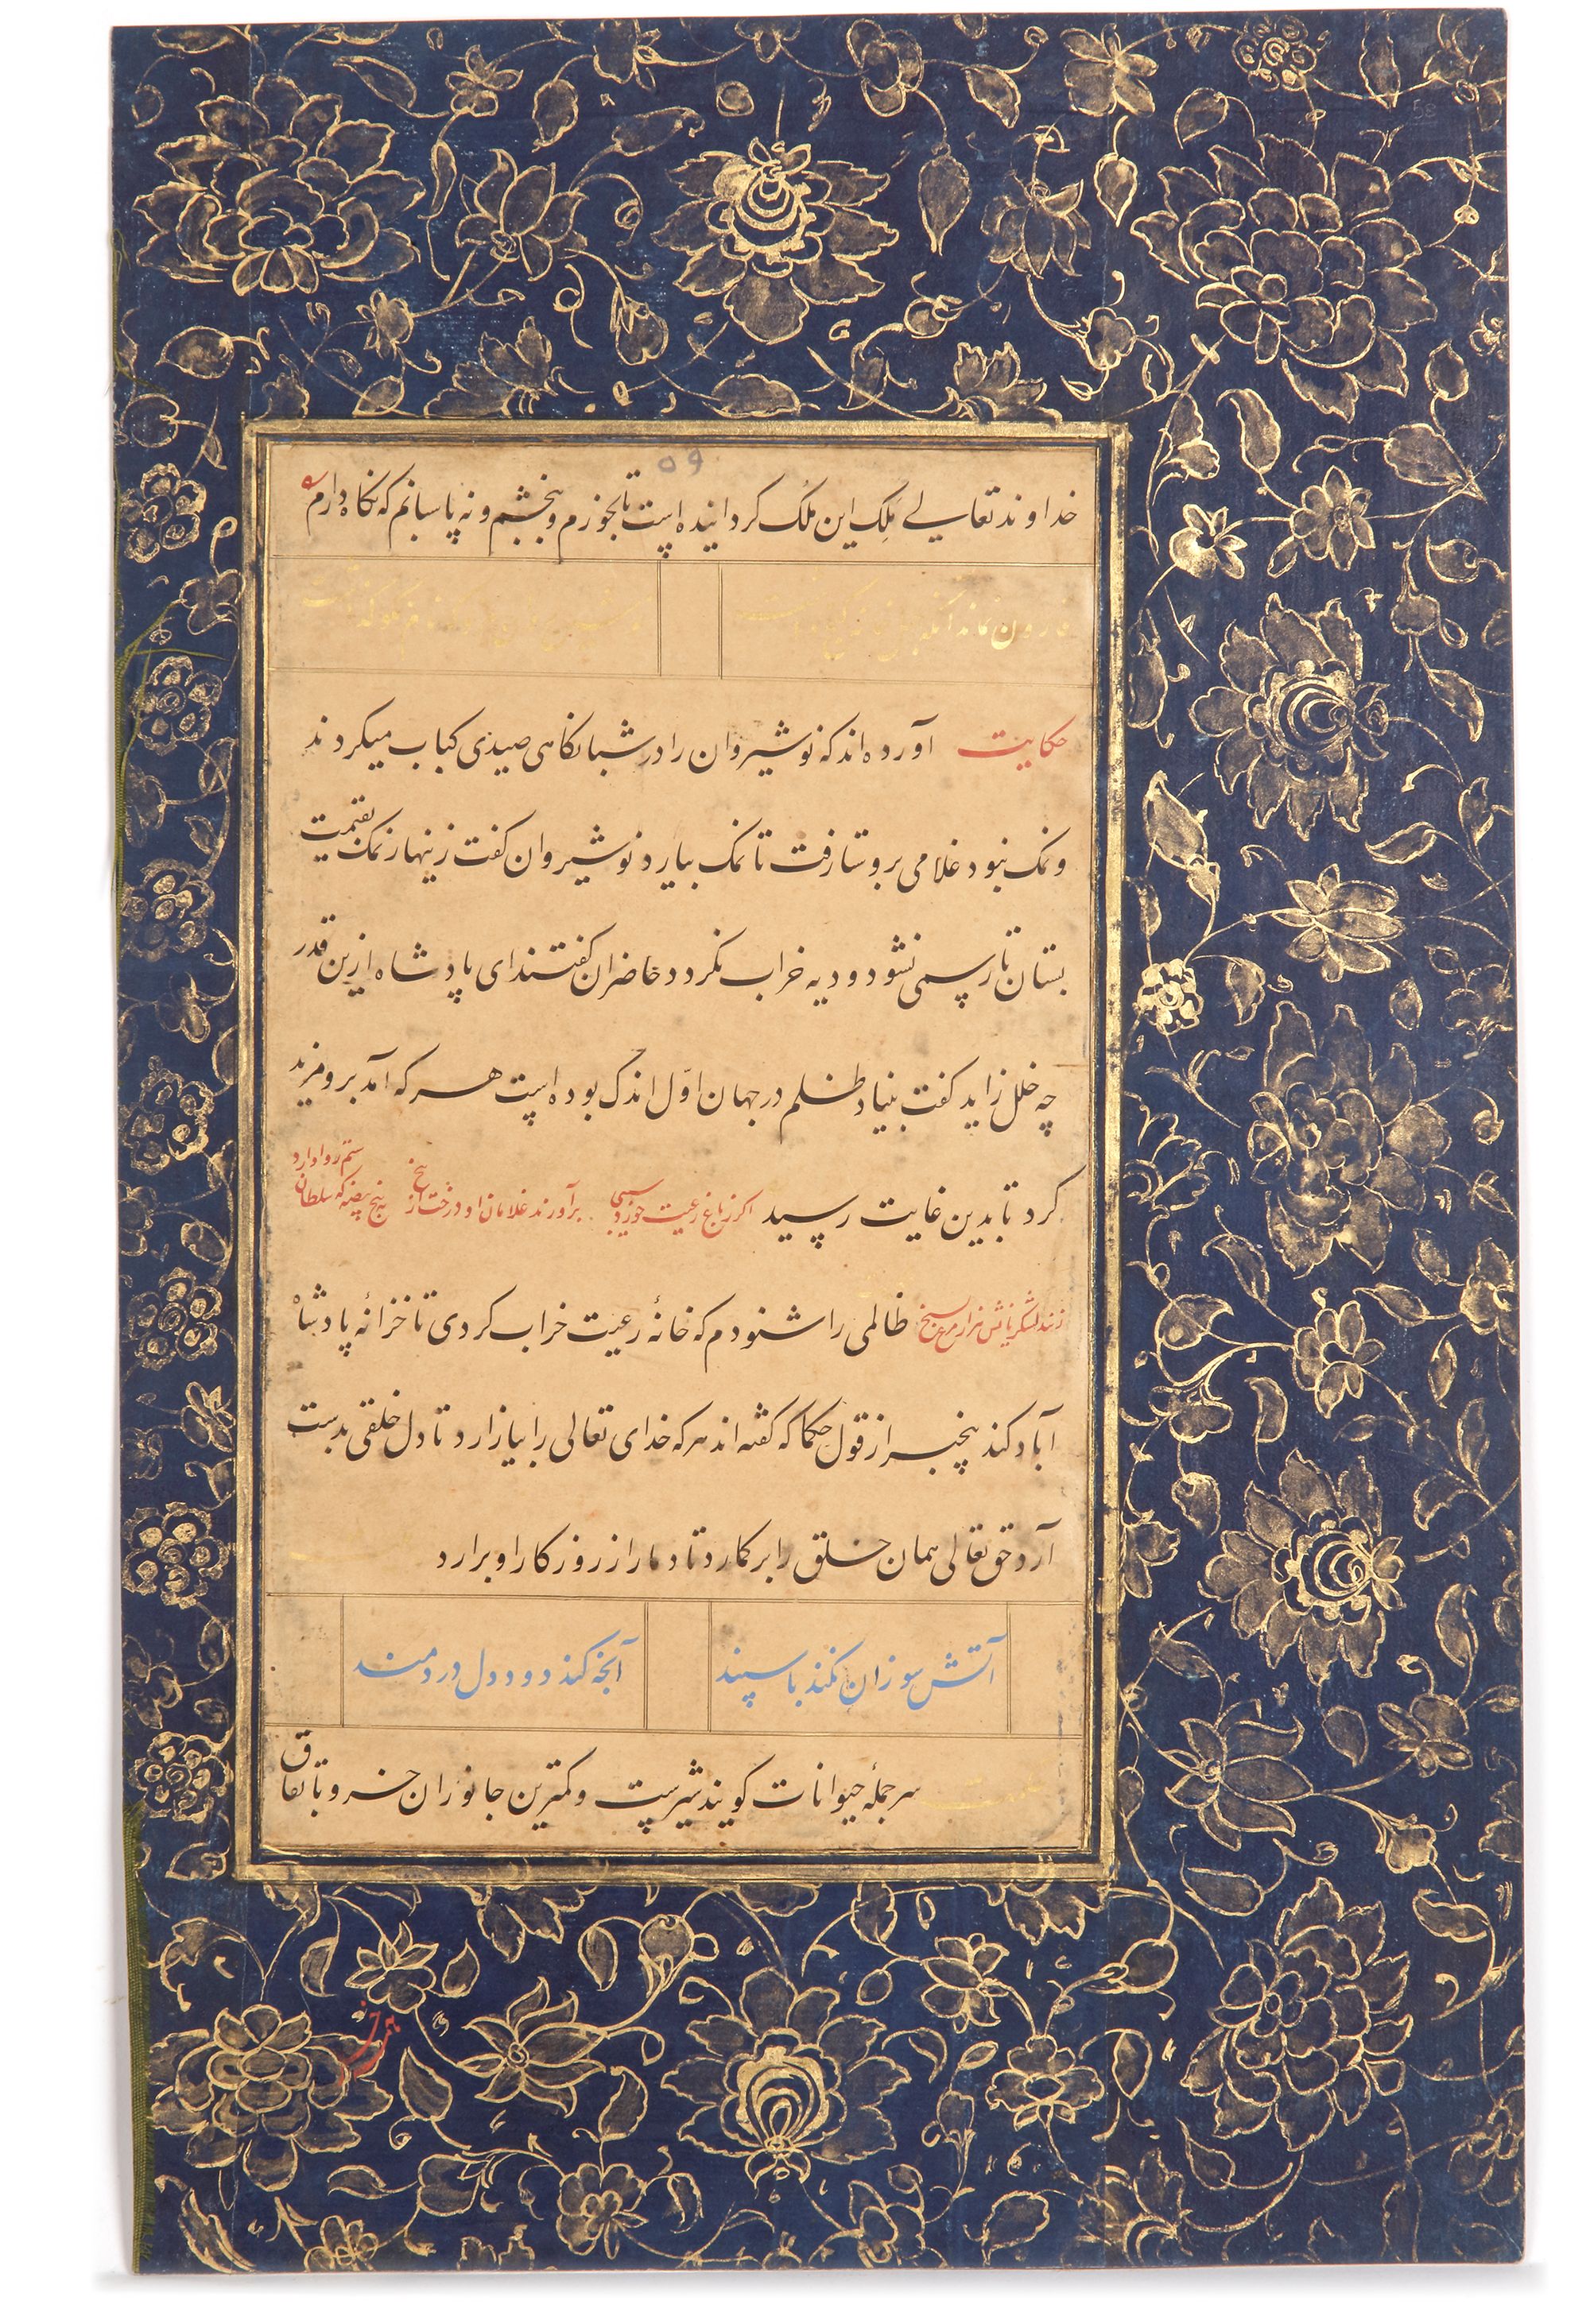 ۵۹
خداوند تعالی ملک این ملک گردانیده است تا بخورم و ببخشم و نه پاسبانم که نگاه دارم
حکایت آورده اند که نوشیروان را در شبانگاهی صیدی کباب میکردند
و نمک نبود غلامی بروستا رفت تا نمک بیارد نوشیروان گفت زینهار نمک بقیمت
بستان تا رسمی نشود و دیه خراب نگردد حاضران گفتند ای پادشاه ازین قدر
چه خلل زاید گفت بنیاد ظلم در جهان اول اندک بوده است هر که آمد برو مزید
کرد تا بدین غایت رسید اگر ز باغ رعیت خورد سیبی برآورند غلامان او درخت از بیخ پنج بیضه که سلطان ستم روا دارد
زنند لشکریانش هزار مرغ بسیخ ظالمی را شنودم که خانهٔ رعیت خراب کردی تا خزانهٔ پادشاه
آباد کند بیخبر از قول حکما که گفته اند هر که خدای تعالی را بیازارد تا دل خلقی بدست
آرد حق تعالی همان خلق را بر گمارد تا دمار از روزگار او برارد
آتش سوزان نکند با سپند آنچه کند دود دل دردمند
سر جملهٔ حیوانات گویند شیرست و کمترین جانوران خر و باتفاق